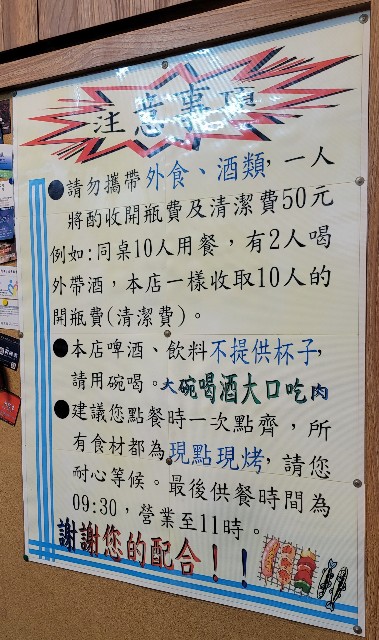 注意事項
●請勿攜帶外食、酒類，一人
將酌收開瓶費及清潔費50元
例如:同桌10人用餐，有2人喝
外帶酒，本店一樣收取10人的
開瓶費(清潔費)。
●本店啤酒、飲料不提供杯子，
請用碗喝。大碗喝酒大口吃肉
●建議您點餐時一次點齊，所
有食材都為現點現烤，請您
耐心等候。最後供餐時間為
09:30，營業至11時。
謝謝您的配合！！